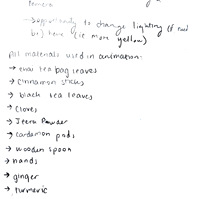 camera
→ opportunity to change lighting (if need
be) here (ie more yellow)
all materials used in animation:
→ thai tea bag leaves
→ cinnamon sticks
→ black tea leaves
→ cloves
→ Jeera Powder
→ cardamon pods
→ wooden spoon
→ hands
→ ginger
→ turmeric